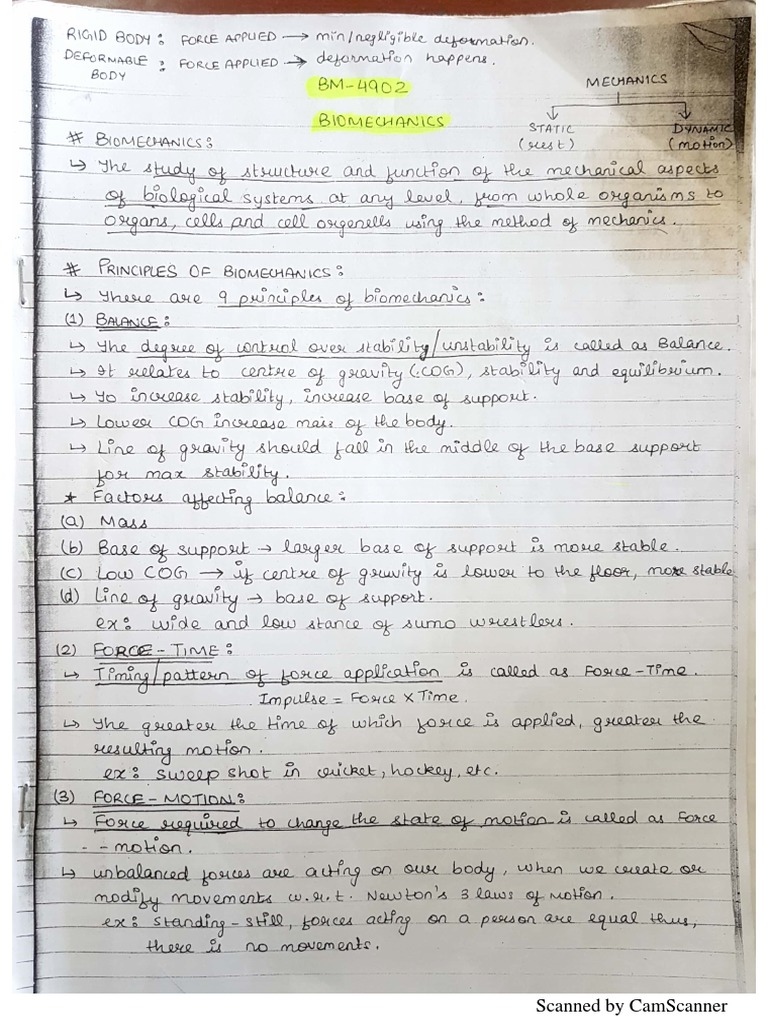 RIGID BODY: FORCE APPLIED → min/negligible deformation.
DEFORMABLE BODY : FORCE APPLIED → deformation happens.
BM-4902
MECHANICS
BIOMECHANICS
STATIC (rest)
DYNAMIC (motion)
# BIOMECHANICS:
↳ The study of structure and function of the mechanical aspects
of biological systems at any level, from whole organisms to
organs, cells and cell orgenells using the method of mechanics.
# PRINCIPLES OF BIOMECHANICS:
↳ There are 9 principles of biomechanics:
(1) BALANCE:
↳ The degree of control over stability/unstability is called as Balance.
↳ It relates to centre of gravity (COG), stability and equilibrium.
↳ To increase stability, increase base of support.
↳ Lower COG increase mass of the body.
↳ Line of gravity should fall in the middle of the base support
for max stability.
* Factors affecting balance:
(a) Mass
(b) Base of support → larger base of support is more stable.
(c) Low COG → if centre of gravity is lower to the floor, more stable
(d) Line of gravity → base of support.
ex: wide and low stance of sumo wrestlers.
(2) FORCE-TIME:
↳ Timing/pattern of force application is called as Force-Time.
Impulse = Force × Time.
↳ The greater the time of which force is applied, greater the
resulting motion.
ex: sweep shot in cricket, hockey, etc.
(3) FORCE-MOTION:
↳ Force required to change the state of motion is called as Force
- -motion.
↳ unbalanced forces are acting on our body, when we create or
modify movements w.r.t. Newton's 3 laws of Motion.
ex: standing-still, forces acting on a person are equal thus,
there is no movements.
Scanned by CamScanner